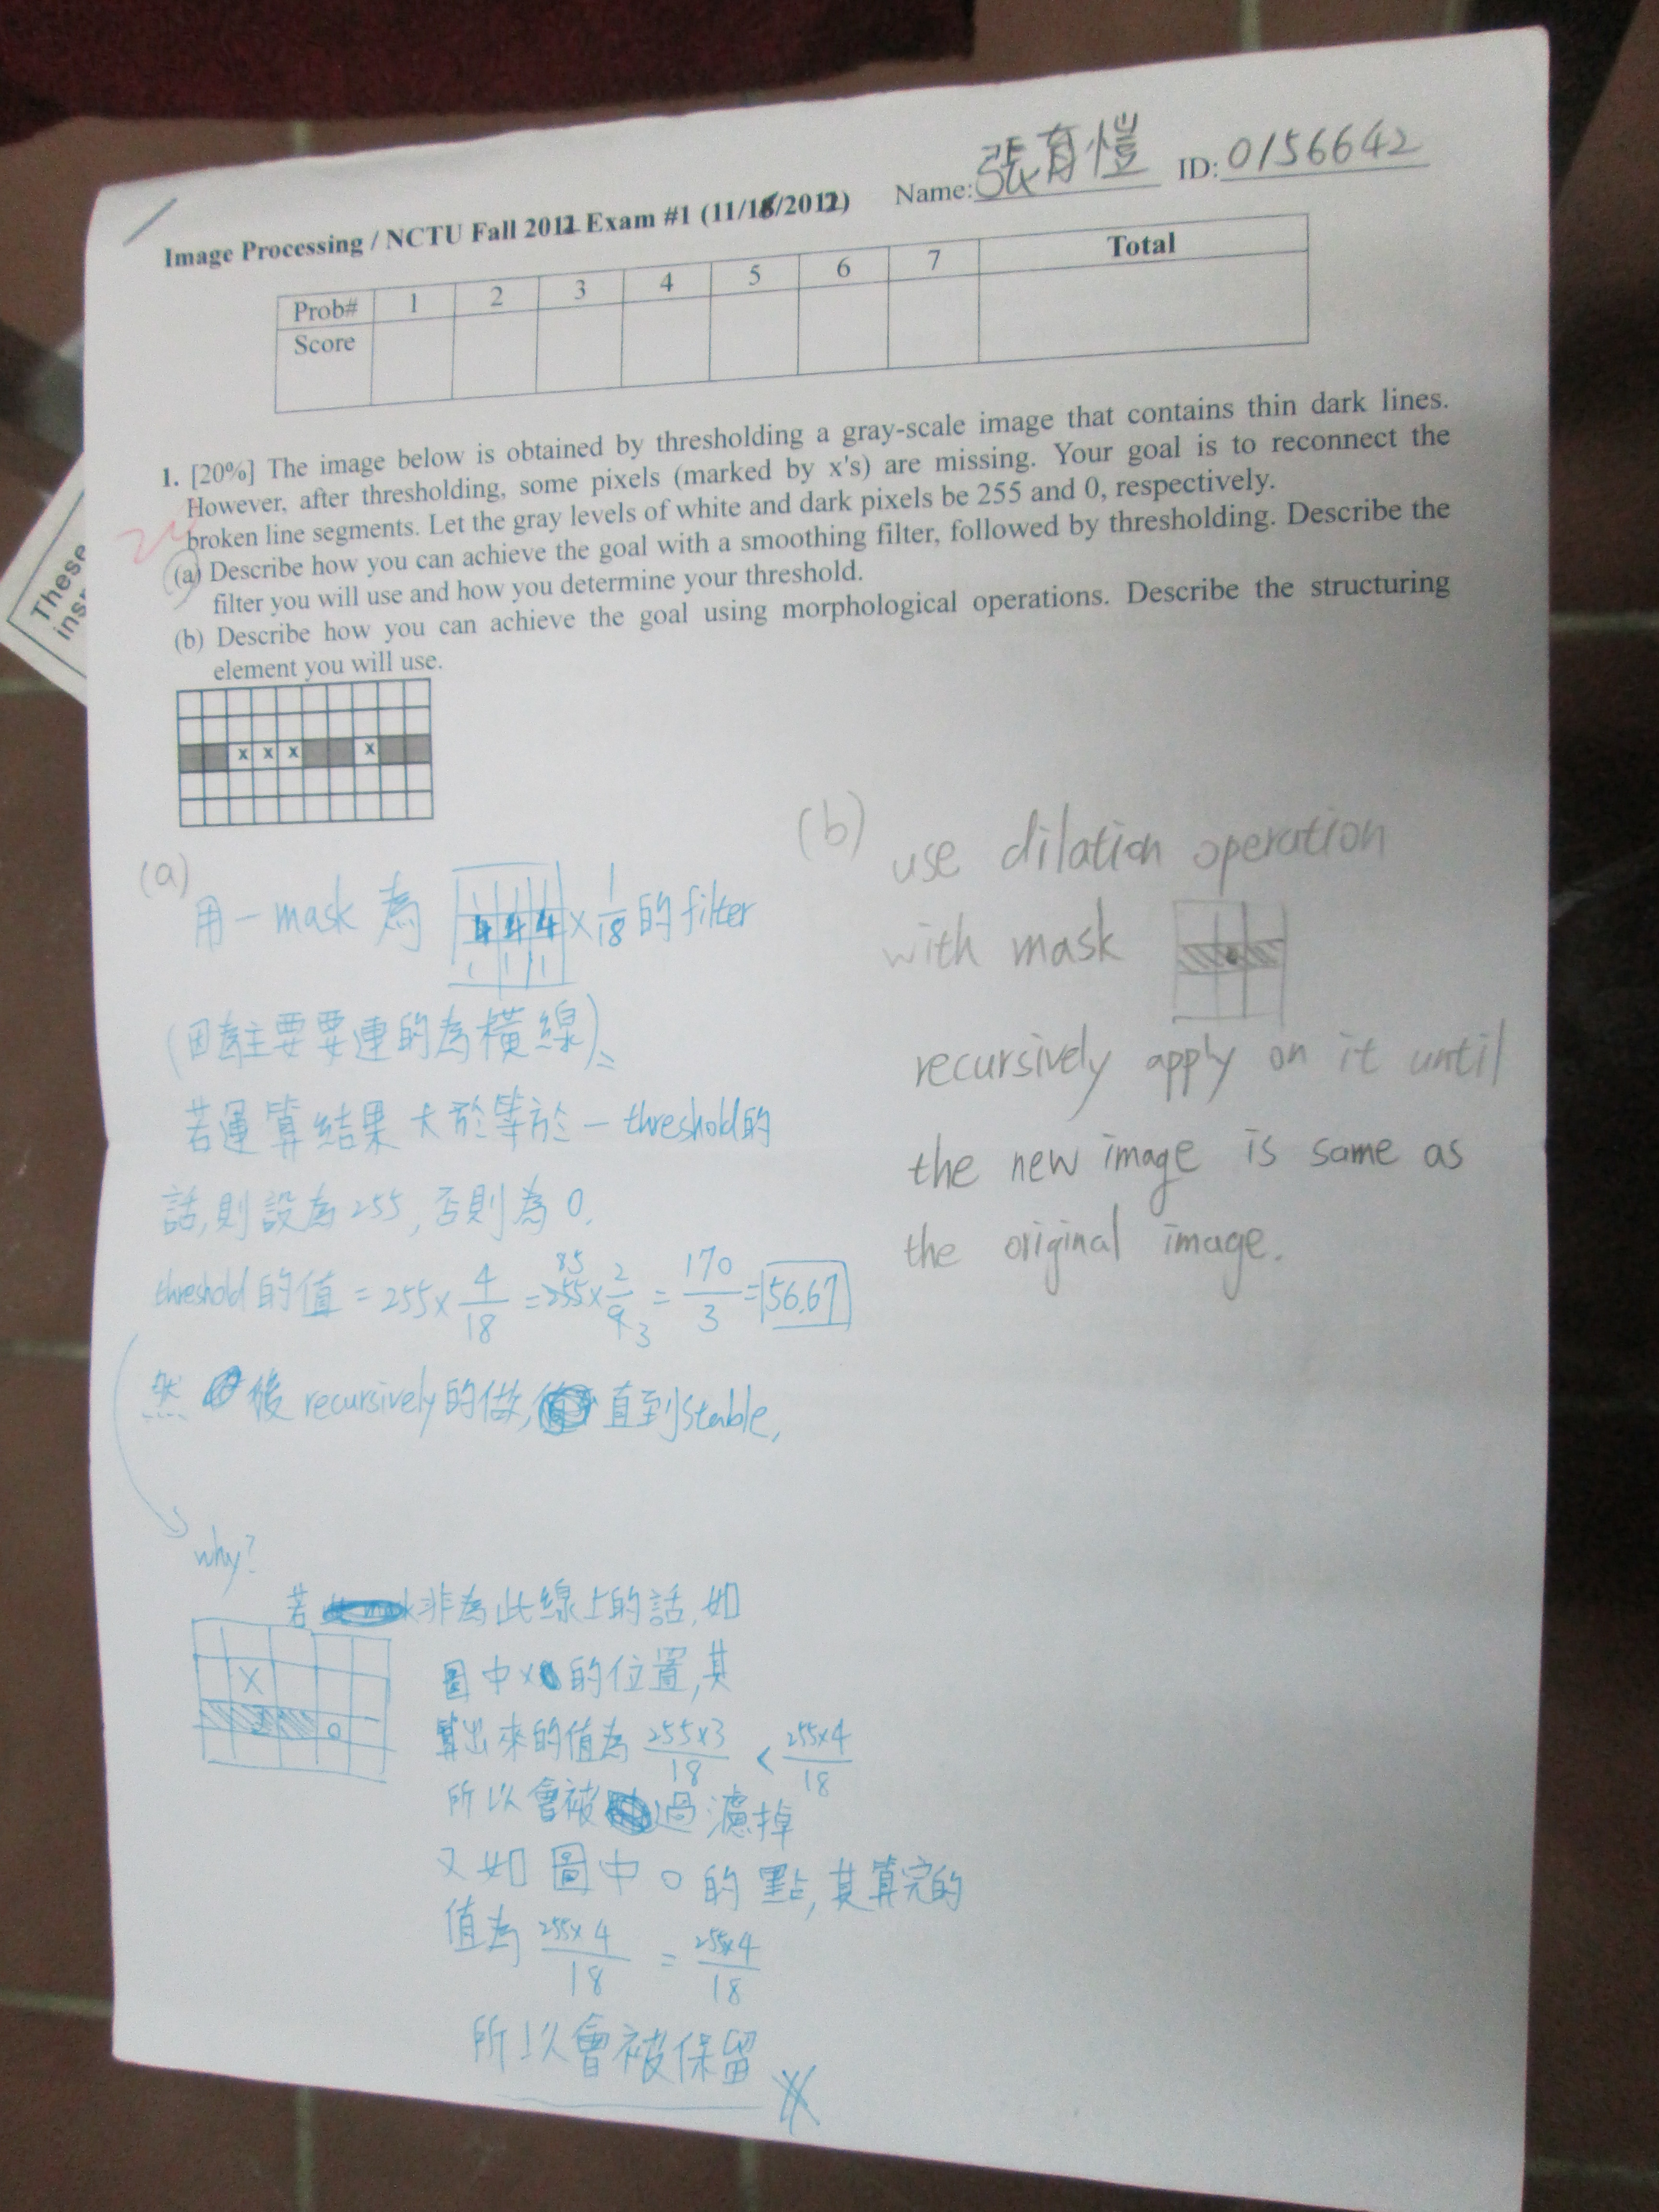 These
Image Processing / NCTU Fall 2012 Exam #1 (11/16/2012) Name: 張育愷 ID: 0156642
Prob# 1 2 3 4 5 6 7 Total
Score
1. [20%] The image below is obtained by thresholding a gray-scale image that contains thin dark lines.
However, after thresholding, some pixels (marked by x's) are missing. Your goal is to reconnect the
broken line segments. Let the gray levels of white and dark pixels be 255 and 0, respectively.
(a) Describe how you can achieve the goal with a smoothing filter, followed by thresholding. Describe the
filter you will use and how you determine your threshold.
(b) Describe how you can achieve the goal using morphological operations. Describe the structuring
element you will use.
x x x x
(a)
用一 mask 為
1 1 1
4 4 4 × 1/18 的 filter
1 1 1
(因為主要要連的為橫線)。
若運算結果大於等於一 threshold 的
話,則設為 255, 否則為 0.
threshold 的值 = 255 × 4/18 = 255 × 2/9 = 170/3 = 56.67
85 3
然後 recursively 的做, 直到 stable,
why?
若 非為此線上的話, 如
圖中 x 的位置, 其
算出來的值為 255×3/18 < 255×4/18
所以會被過濾掉
又如圖中 o 的點, 其算完的
值為 255×4/18 = 255×4/18
所以會被保留
X
o
(b)
use dilation operation
with mask
recursively apply on it until
the new image is same as
the original image.